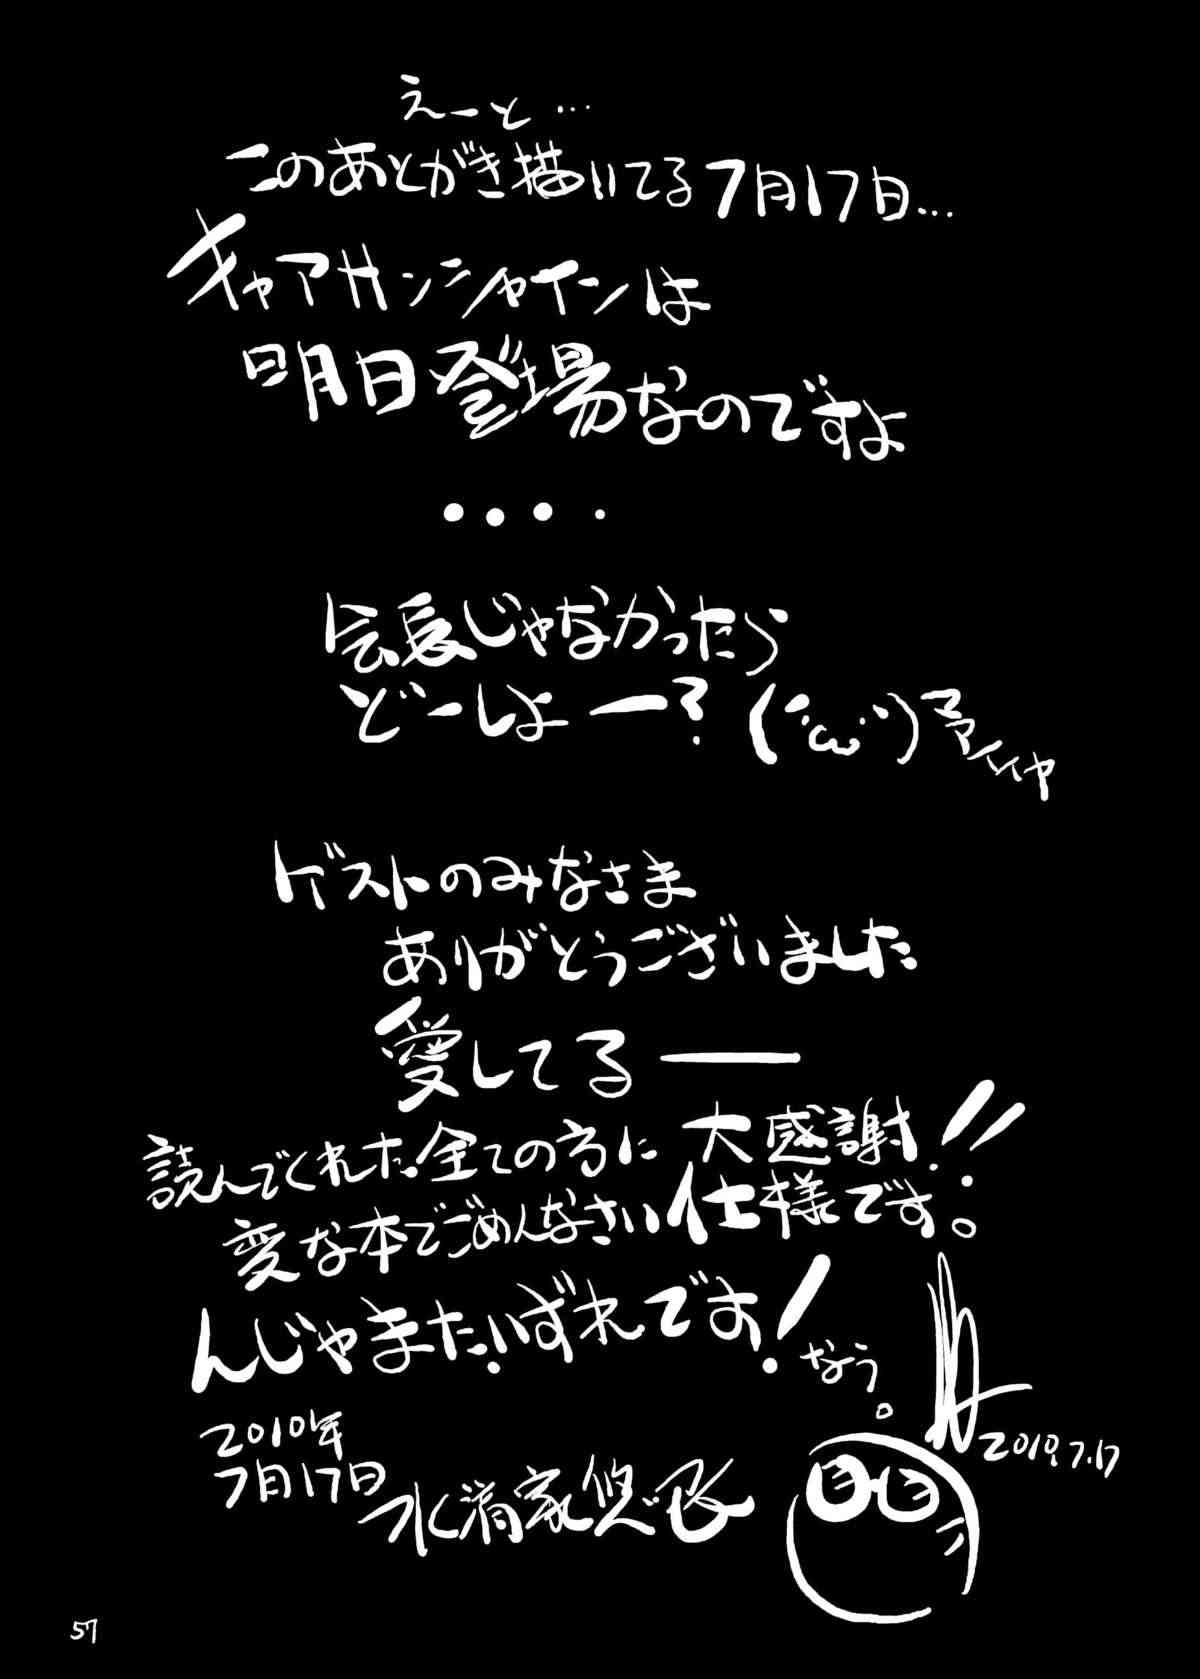 えーと…
このあとがき描いてる7月17日…
キャアサンシャインは
明日登場なのですよ
・・・・
会長じゃなかったら
どーしよー？(´・ω・`)
ゲストのみなさま
ありがとうございました
愛してるー
読んでくれた全ての方に大感謝!!
変な本でごめんなさい仕様です。
んじゃまたいずれです！なう。
2010年
7月17日
2010.7.17
57